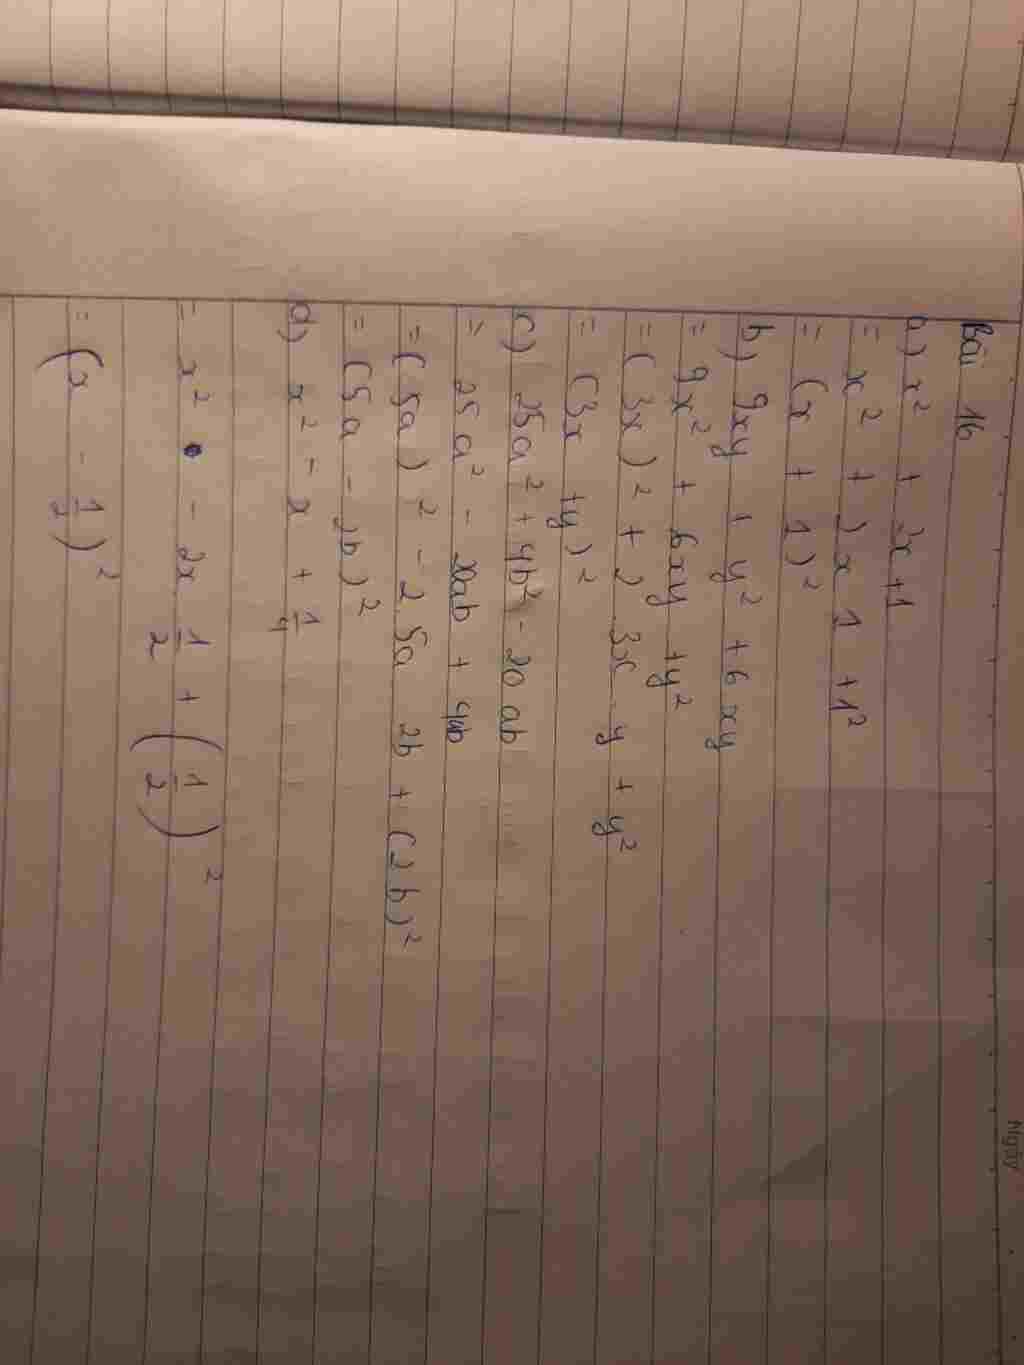 Ngày
Bài 16
a) x² + 2x+1
= x² + 2x 1 +1²
= (x + 1)²
b) 9xy + y² + 6xy
= 9x² + 6xy +y²
= (3x)² + 2 3x y + y²
= (3x +y)²
c) 25a² + 4b² - 20 ab
= 25a² - 20ab + 4b
= (5a)² - 2 5a 2b + (2b)²
= (5a - 2b)²
d) x² - x + 1/4
= x² - 2x 1/2 + (1/2)²
= (x - 1/2)²